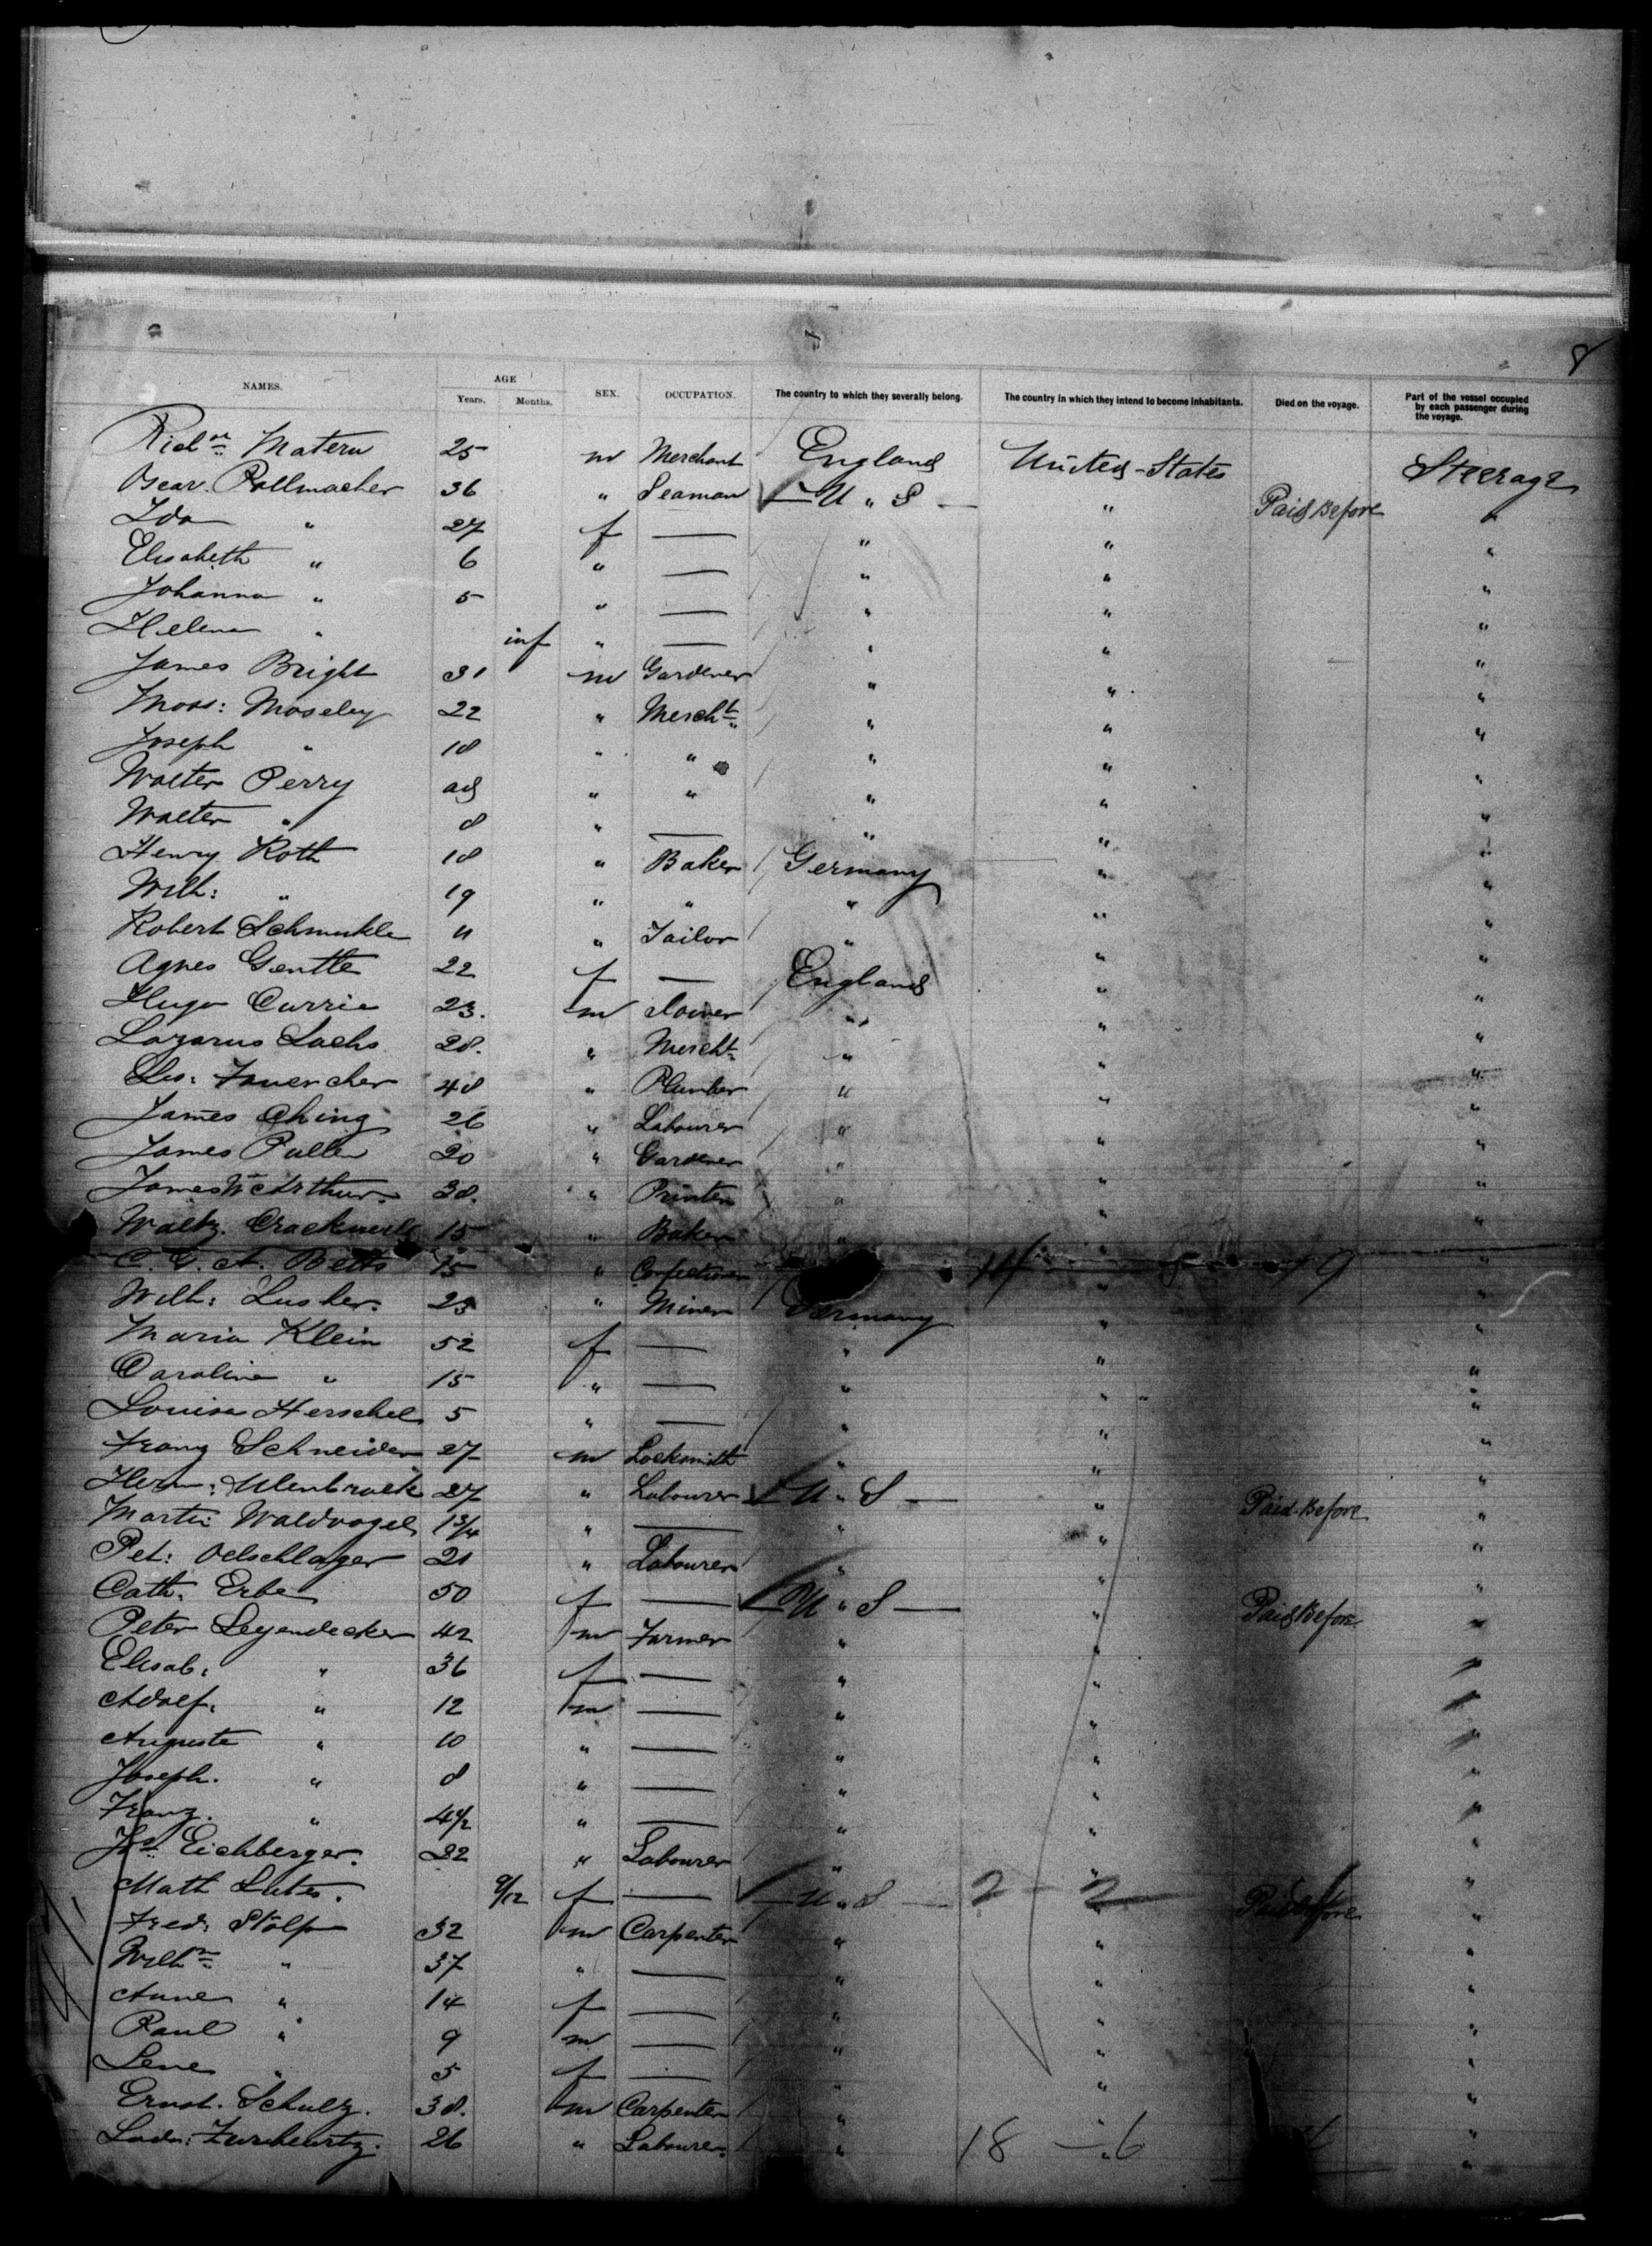 8
NAMES. AGE Years. Months. SEX. OCCUPATION. The country to which they severally belong. The country in which they intend to become inhabitants. Died on the voyage. Part of the vessel occupied by each passenger during the voyage.
Richd Matern 25 m Merchant England United States Steerage
Oscar Pollmacher 36 " Seaman — U " S — " Paid Before "
Ida " 27 f — " " "
Elisabeth " 6 " — " " "
Johanna " 5 " — " " "
Helena " inf " — " " "
James Bright 31 m Gardener " " "
Moss: Moseley 22 " Mercht " " "
Joseph " 18 " " " " "
Walter Perry ad " " " " "
Walter " 8 " — " " "
Henry Roth 18 " Baker Germany " "
Wilh: " 19 " " " " "
Robert Schmukle 11 " Tailor " " "
Agnes Gentle 22 f — England " "
Hugo Currie 23. m " " "
Lazarus Sachs 28. " Mercht " " "
48 " Plumber " " "
James Ching 26 " Labourer " " "
James Pullen 20 " Gardener " " "
James McArthur. 38. " Printer " " "
Cracknell 15 " Baker " " "
C. G. A. Betts 15 " Confectioner 14 9 "
Wilh: Lusher. 23 " Miner Germany " "
Maria Klein 52 f — " " "
Caroline " 15 " — " " "
Louisa Herschel 5 " — " " "
Franz Schneider 27 m Locksmith " " "
Herm: Ulenbrock 27 " Labourer — U " S — " Paid Before "
Martin Waldvogel 1 3/4 " — " " "
Pet: Oelschlager 21 " Labourer " " "
Cath: Erbe 50 f — — U " S — " Paid Before "
Peter Leyendecker 42 m Farmer " " "
Elisab: " 36 f — " " "
Adolf. " 12 m — " " "
Auguste " 10 " — " " "
Joseph. " 8 " — " " "
Franz. " 4 1/2 " — " " "
Eichberger. 22 " Labourer " " "
Math Lutes. 9/12 f — — U " S — 2 - 2 " Paid Before "
Fred: Stolp 32 m Carpenter " " "
Wilhm " 37 " — " " "
Anne " 14 f — " " "
Paul " 9 m — " " "
Lene " 5 f — " " "
Ernst. Schulz. 38. m Carpenter " " "
26 " Labourer. " 18 — 6 " "